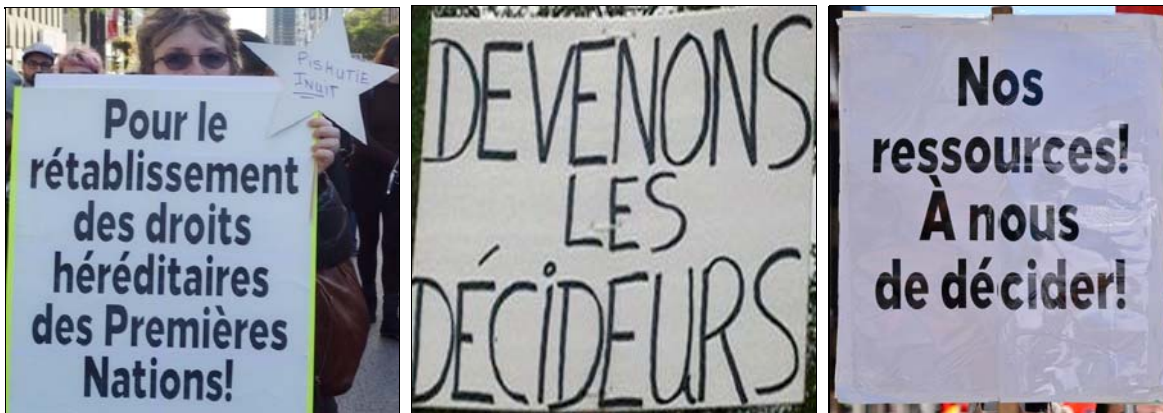 Pour le
rétablissement
des droits
héréditaires
des Premières
Nations!
PISHUTIE
INUIT
DEVENONS
LES
DÉCIDEURS
Nos
ressources!
À nous
de décider!